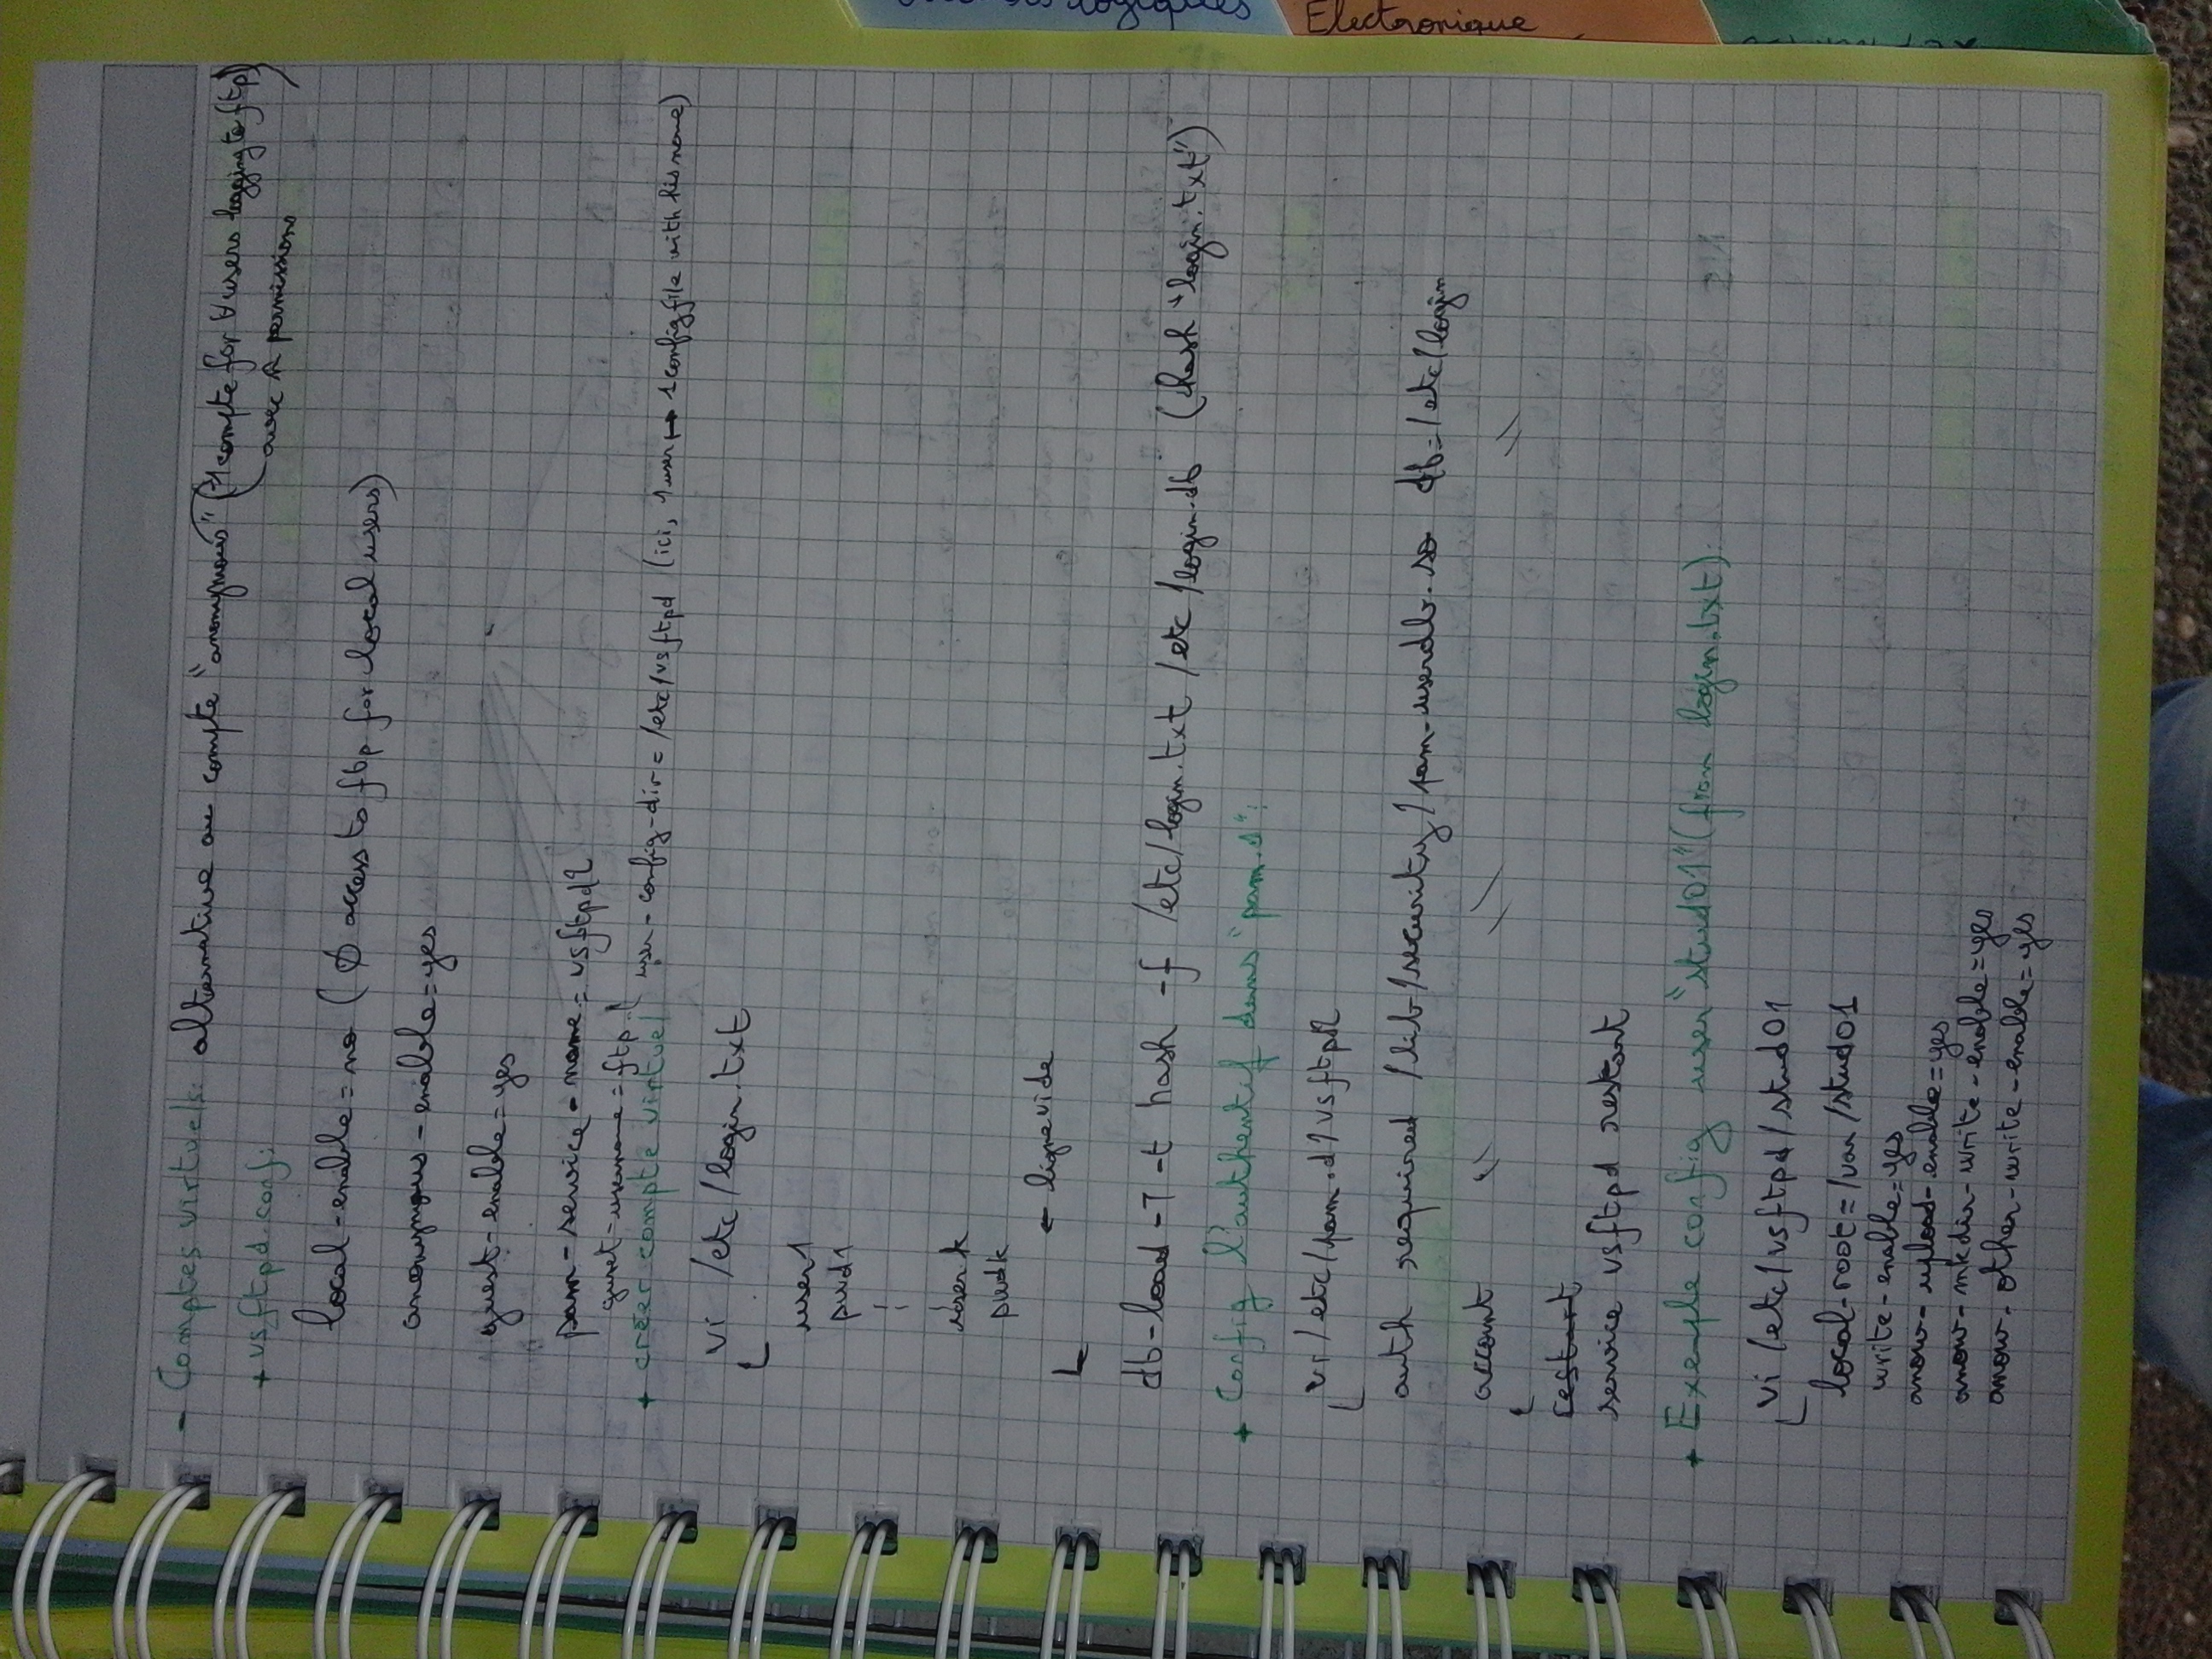 - Comptes virtuels: alternative au compte "anonymous" (1 compte for ∀ users logging to ftp)
avec R permissions
+ vsftpd.conf:
local-enable=no (∅ access to ftp for local users)
anonymous-enable=yes
guest-enable=yes
pam-service-name=vsftpd2
guest-username=ftp
+ créer compte virtuel
user-config-dir=/etc/vsftpd (ici, 1 user ↦ 1 config file with his name)
vi /etc/login.txt
user1
pwd1
user k
pwdk
← ligne vide
db-load -T -t hash -f /etc/login.txt /etc/login.db (hash "login.txt")
+ Config l'authentif dans "pam.d":
vi /etc/pam.d/vsftpd2
auth required /lib/security/pam-userdb.so db=/etc/login
account " " "
restart
service vsftpd restart
+ Exemple config user "stud01" (from login.txt):
vi /etc/vsftpd/stud01
local-root=/var/stud01
write-enable=yes
anow-upload-enable=yes
anow-mkdir-write-enable=yes
anow-other-write-enable=yes
Electronique